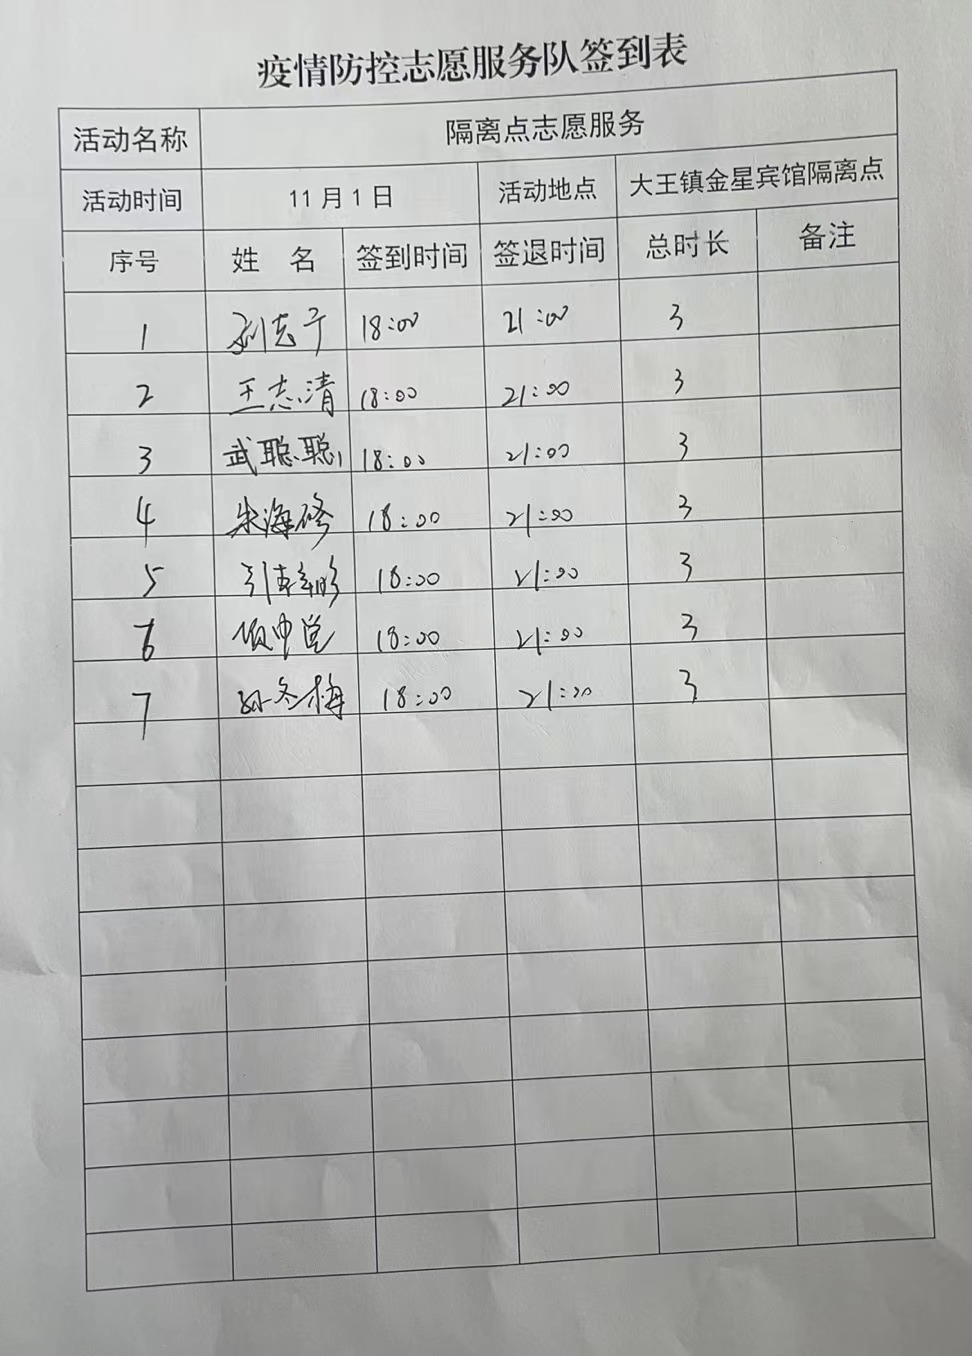 疫情防控志愿服务队签到表
活动名称 隔离点志愿服务
活动时间 11月1日 活动地点 大王镇金星宾馆隔离点
序号 姓名 签到时间 签退时间 总时长 备注
1 刘志于 18:00 21:00 3
2 王志清 18:00 21:00 3
3 武聪聪 18:00 21:00 3
4 朱海修 18:00 21:00 3
5 18:00 21:00 3
6 18:00 21:00 3
7 孙冬梅 18:00 21:00 3